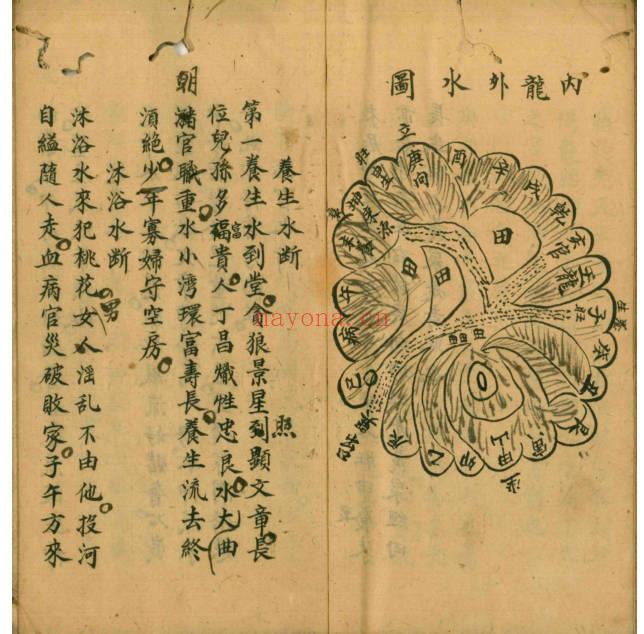 内龍外水圖
立
旺
庚向
酉
辛
戌
乾
亥官
壬龍
子
旺
癸
丑
艮
寅
甲山
卯
乙
辰
巳
病
午
坤
田
田
田
養生水断
第一養生水到堂貪狼景星到顯文章長
照
位兒孫多福貴人丁昌熾性忠良水大曲
富
朝
滿官職重水小湾環富壽長養生流去終
湏絕少年寡婦守空房
沐浴水断
沐浴水來犯桃花女人淫乱不由他投河
男
自縊隨人走血病官災破敗家子午方來
nayona.cn